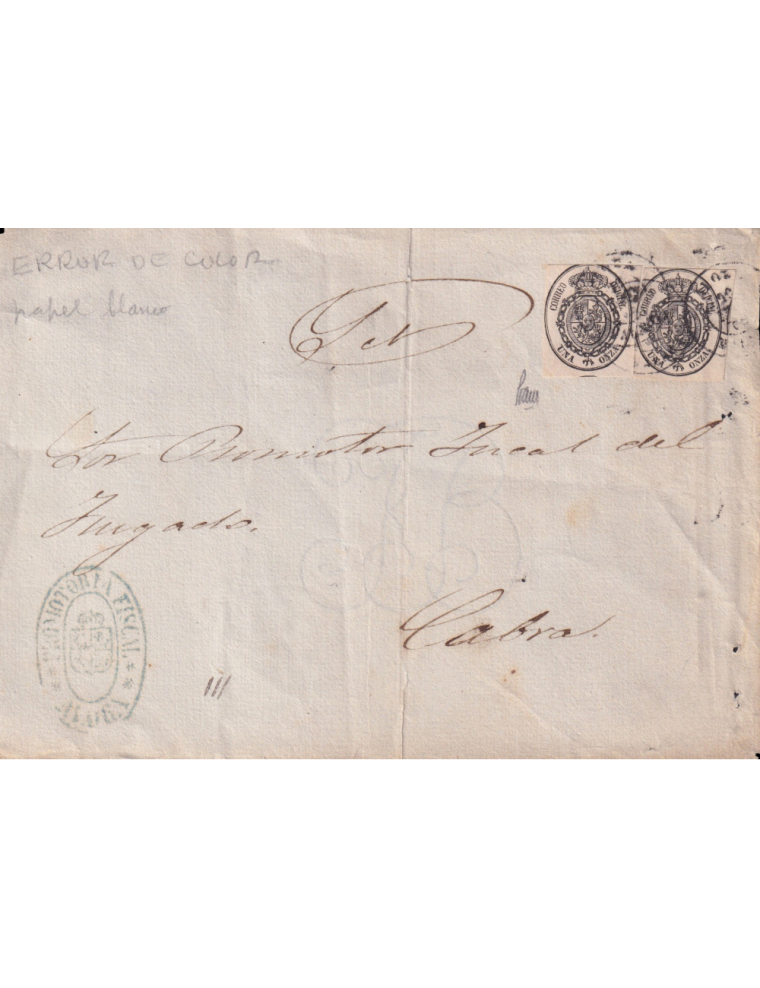 ERROR DE COLOR
papel blanco
CORREO OFICIAL
UNA ONZA
CORREO OFICIAL
UNA ONZA
Sr
Promotor Fiscal del
Juzgado.
Cabra.
PROMOTORIA FISCAL